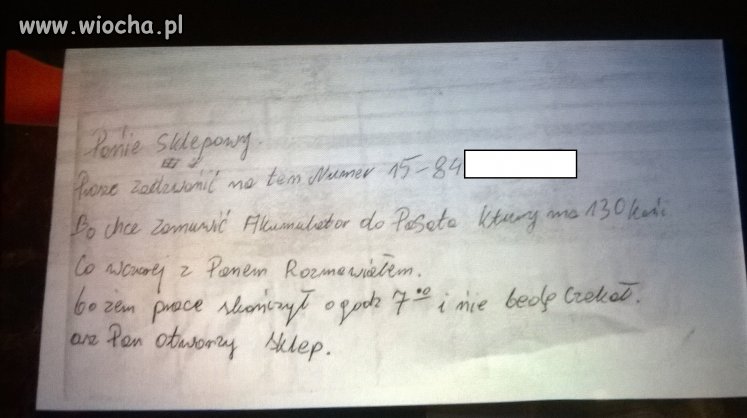 www.wiocha.pl
Panie Sklepowy.
Prosze zadzwonić na tem Numer 15-84
Bo chce zamuwić Akumulator do Pasata ktury ma 130 koni
Co wczorej z Panem Rozmawiałem.
bo żem prace skończył o godz 7⁰⁰ i nie będe czekał.
aż Pan otworzy sklep.